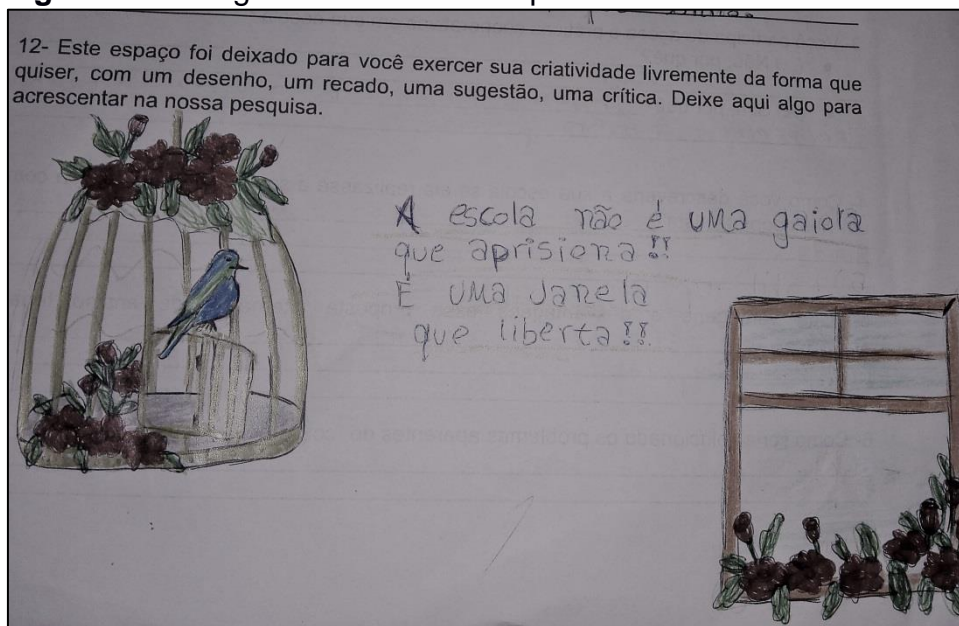 12- Este espaço foi deixado para você exercer sua criatividade livremente da forma que
quiser, com um desenho, um recado, uma sugestão, uma crítica. Deixe aqui algo para
acrescentar na nossa pesquisa.
A escola não é uma gaiola
que aprisiona!!
É uma Janela
que liberta!!